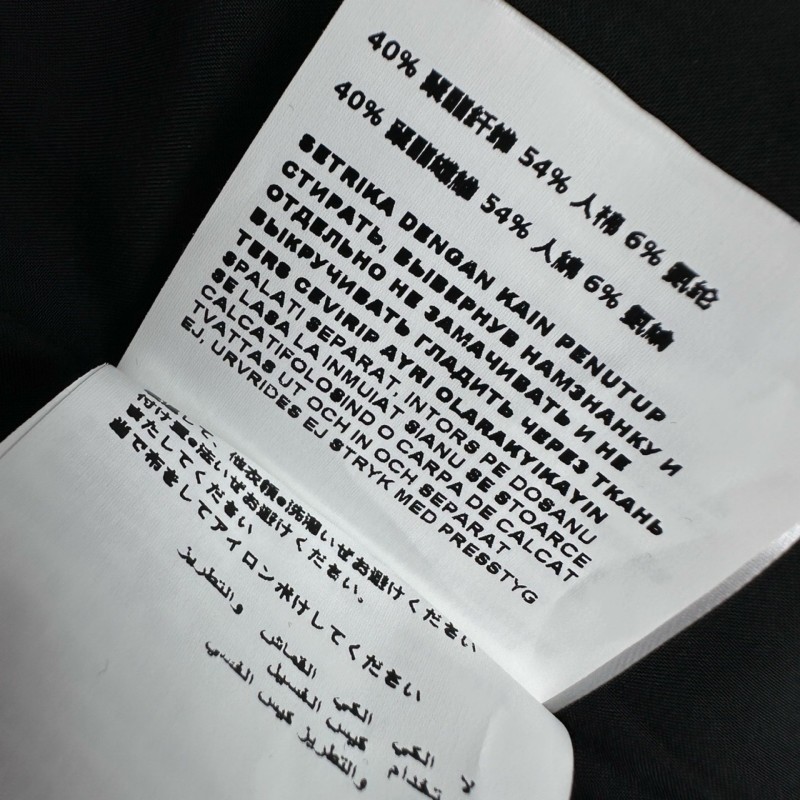 40% 聚酯纤维 54% 人棉 6% 氨纶
40% 聚酯纖維 54% 人綿 6% 氨綸
SETRIKA DENGAN KAIN PENUTUP
СТИРАТЬ, ВЫВЕРНУВ НАМЗНАНКУ И
ОТДЕЛЬНО НЕ ЗАМАЧИВАТЬ И НЕ
ВЫКРУЧИВАТЬ ГЛАДИТЬ ЧЕРЕЗ ТКАНЬ
TERS CEVIRIP AYRI OLARAKYIKAYIN
SPALATI SEPARAT, INTORS PE DOSANU
SE LASA LA INMUIAT SIANU SE STOARCE
CALCATIFOLOSIND O CARPA DE CALCAT
TVATTAS UT OCH IN OCH SEPARAT
EJ, URVRIDES EJ STRYK MED PRESSTYG
お避けください
いぜお避けください。
してください
当て布をしてアイロン
けしてください
والتطريز
الكي القماش
لا الكي كيس الغسيل
والتطريز كيس